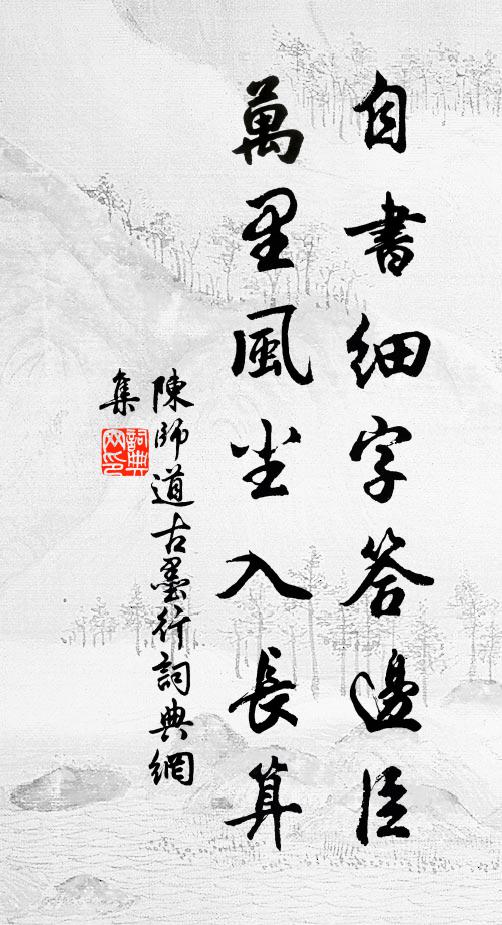 自書細字答邊臣
萬里風尘入長算
陳師道古墨行詞典網
集
詞典
网印